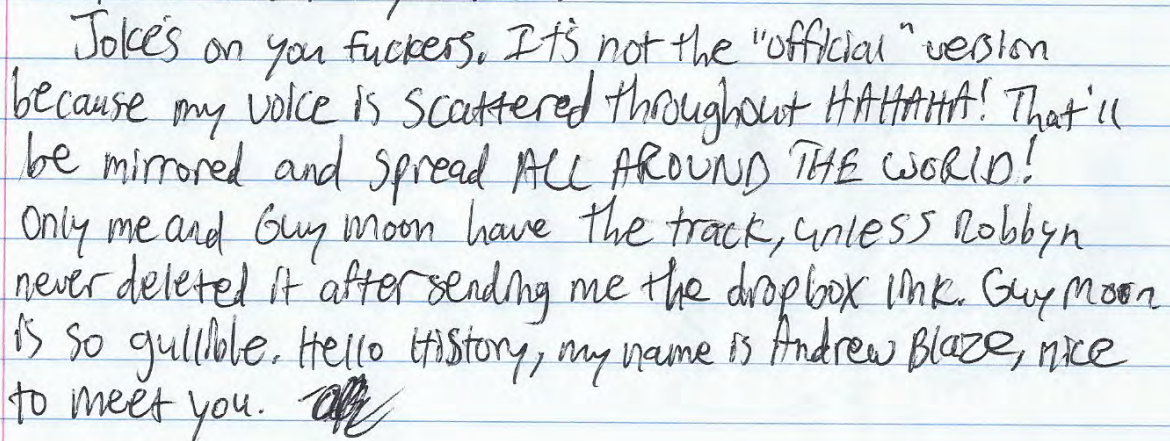 Joke's on you fuckers. It's not the "official" version
because my voice is scattered throughout HAHAHA! That'll
be mirrored and spread ALL AROUND THE WORLD!
Only me and Guy Moon have the track, unless Robbyn
never deleted it after sending me the dropbox link. Guy Moon
is so gullible. Hello History, my name is Andrew Blaze, nice
to meet you.